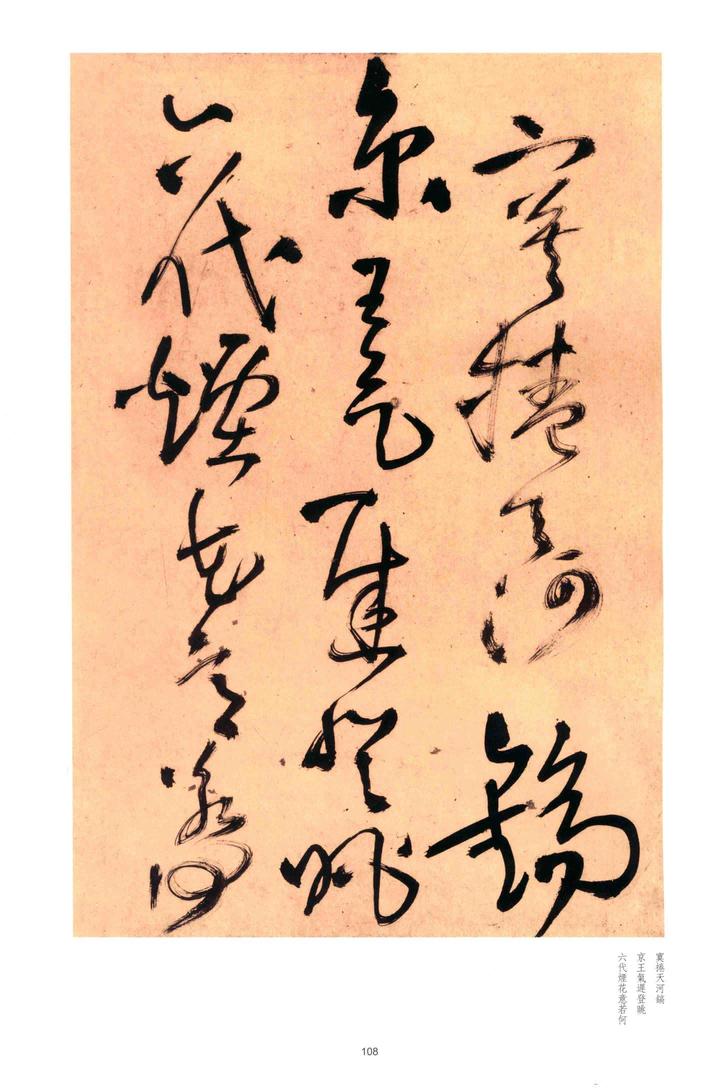 寞捲天河鎬
京王氣遲登眺
六代煙花意若何
寞捲天河鎬
京王氣遲登眺
六代煙花意若何
108